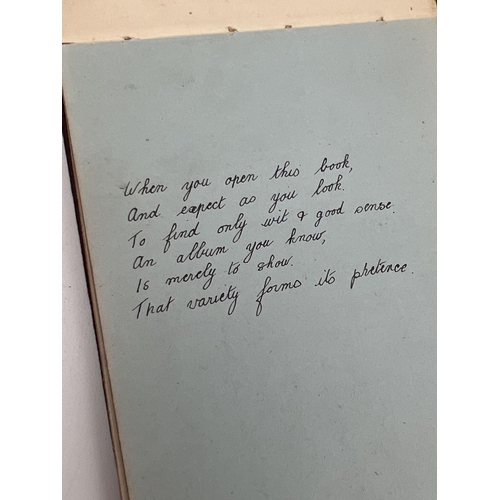 When you open this book,
And expect as you look.
To find only wit & good sense.
An album you know,
Is merely to show.
That variety forms its pretence.